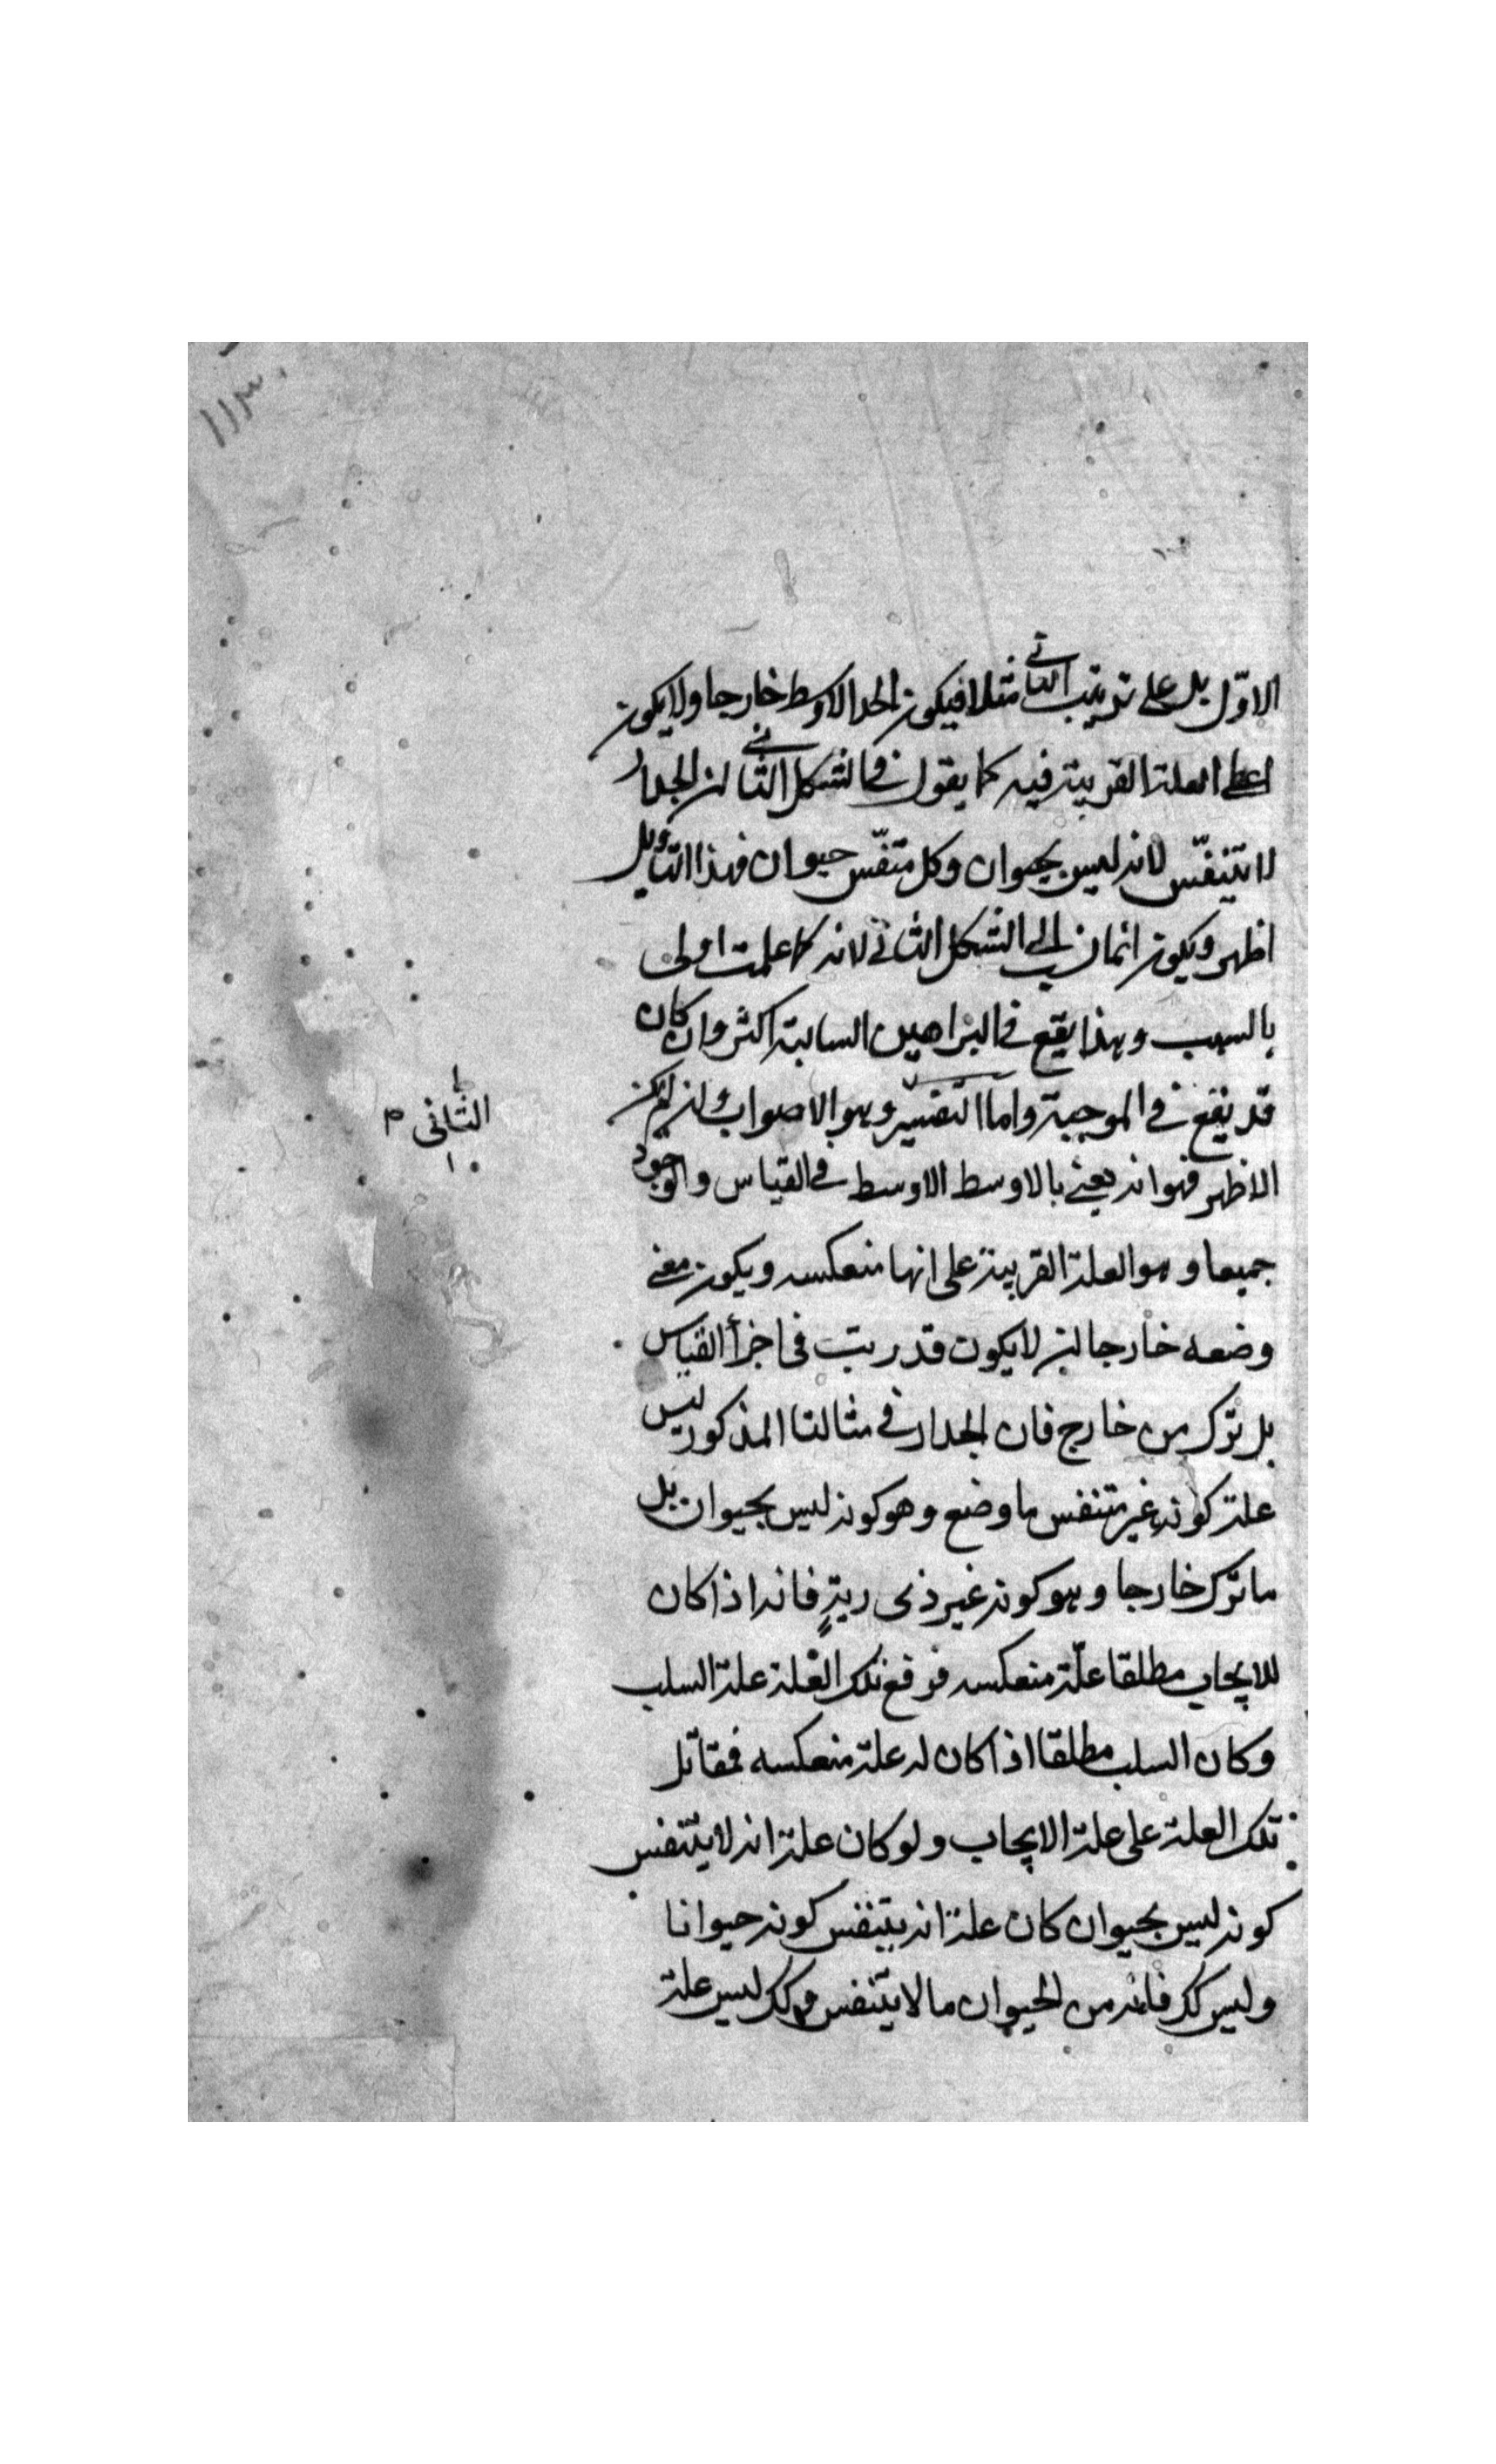 ١١٣
الاوّل بل على ترتيب الثانى مثلا فيكون الحد الاوسط خارجا ولا يكون
اعطى العلة القريبة فيه كما يقول فى الشكل الثانى ان الجدار
لا يتنفّس لانه ليس بحيوان وكل متنفّس حيوان فهذا التاويل
اظهر ويكون انما نسب الى الشكل الثانى لانه كما علمت اولى
بالسلب وهذا يقع فى البراهين السالبة اكثر وان كان
قد يقع فى الموجبة واما التفسير وهو الاصواب وان لم يكن
الثانى م
الاظهر فهو انه يعنى بالاوسط الاوسط فى القياس والوجود
جميعا وهو العلة القريبة على انها منعكسه ويكون معنى
وضعه خارجا ان لا يكون قد رتب فى اجزأ القياس
بل ترك من خارج فان الجدار فى مثالنا المذكور ليس
علة كونه غير متنفس ما وضع وهو كونه ليس بحيوان بل
ما ترك خارجا وهو كونه غير ذى رية فانه اذا كان
للايجاب مطلقا علّة منعكسه فرفع تلك العلة علة السلب
وكان السلب مطلقا اذا كان له علة منعكسه فمقابل
تلك العلة على علة الايجاب ولو كان علة انه لا يتنفس
كونه ليس بحيوان كان علة انه يتنفس كونه حيوانا
وليس كك فانه من الحيوان ما لا يتنفس وكك ليس علة